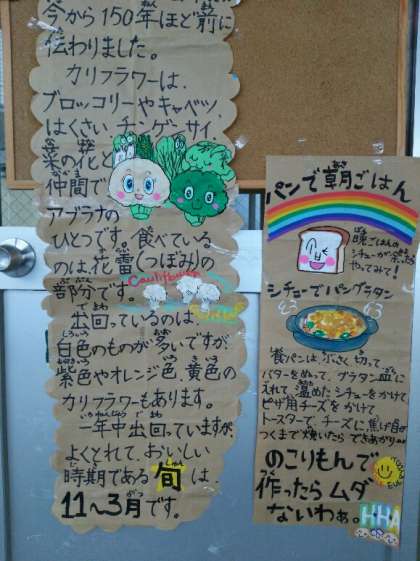 今から150年ほど前に
伝わりました。
カリフラワーは、
ブロッコリーやキャベツ、
はくさい、チンゲンサイ、
菜の花と
仲間で
アブラナの
ひとつです。食べている
のは、花蕾(つぼみ)の
部分です。
Cauliflower
出回っているのは、
白色のものが多いですが、
紫色やオレンジ色、黄色の
カリフラワーもあります。
一年中出回っていますが、
よくとれて、おいしい
時期である旬は、
11〜3月です。
パンで朝ごはん
晩ごはんの
シチューが
やってみて!
シチューでパングラタン
食パンは、小さく切って
バターをぬって、グラタン皿に
入れて温めたシチューをかけて
ピザ用チーズをかけて
トースターで、チーズに焦げ目が
つくまで焼いたらできあがり
のこりもんで
作ったらムダ
ないわぁ。
HHA